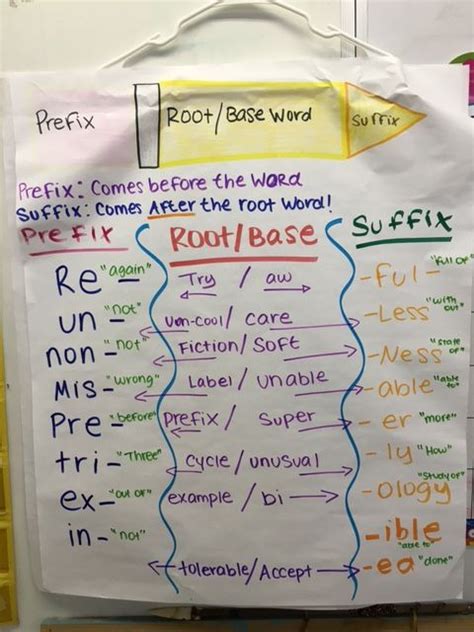 Prefix Root/Base Word Suffix
Prefix: Comes before the WORD
Suffix: Comes After the root word!
Prefix Root/Base Suffix
Re- "again" Try / aw -Ful- "full of"
un- "not" Un-cool/ care -Less "with out"
non- "not" Fiction/Soft -Ness "state of"
Mis- "wrong" Label/unable -able "able to"
Pre- "before" Prefix/ Super -er "more"
tri- "Three" cycle/unusual -ly "How"
ex- "out of" example/bi -Ology "study of"
in- "not" -ible "able to"
tolerable/Accept -ed "done"